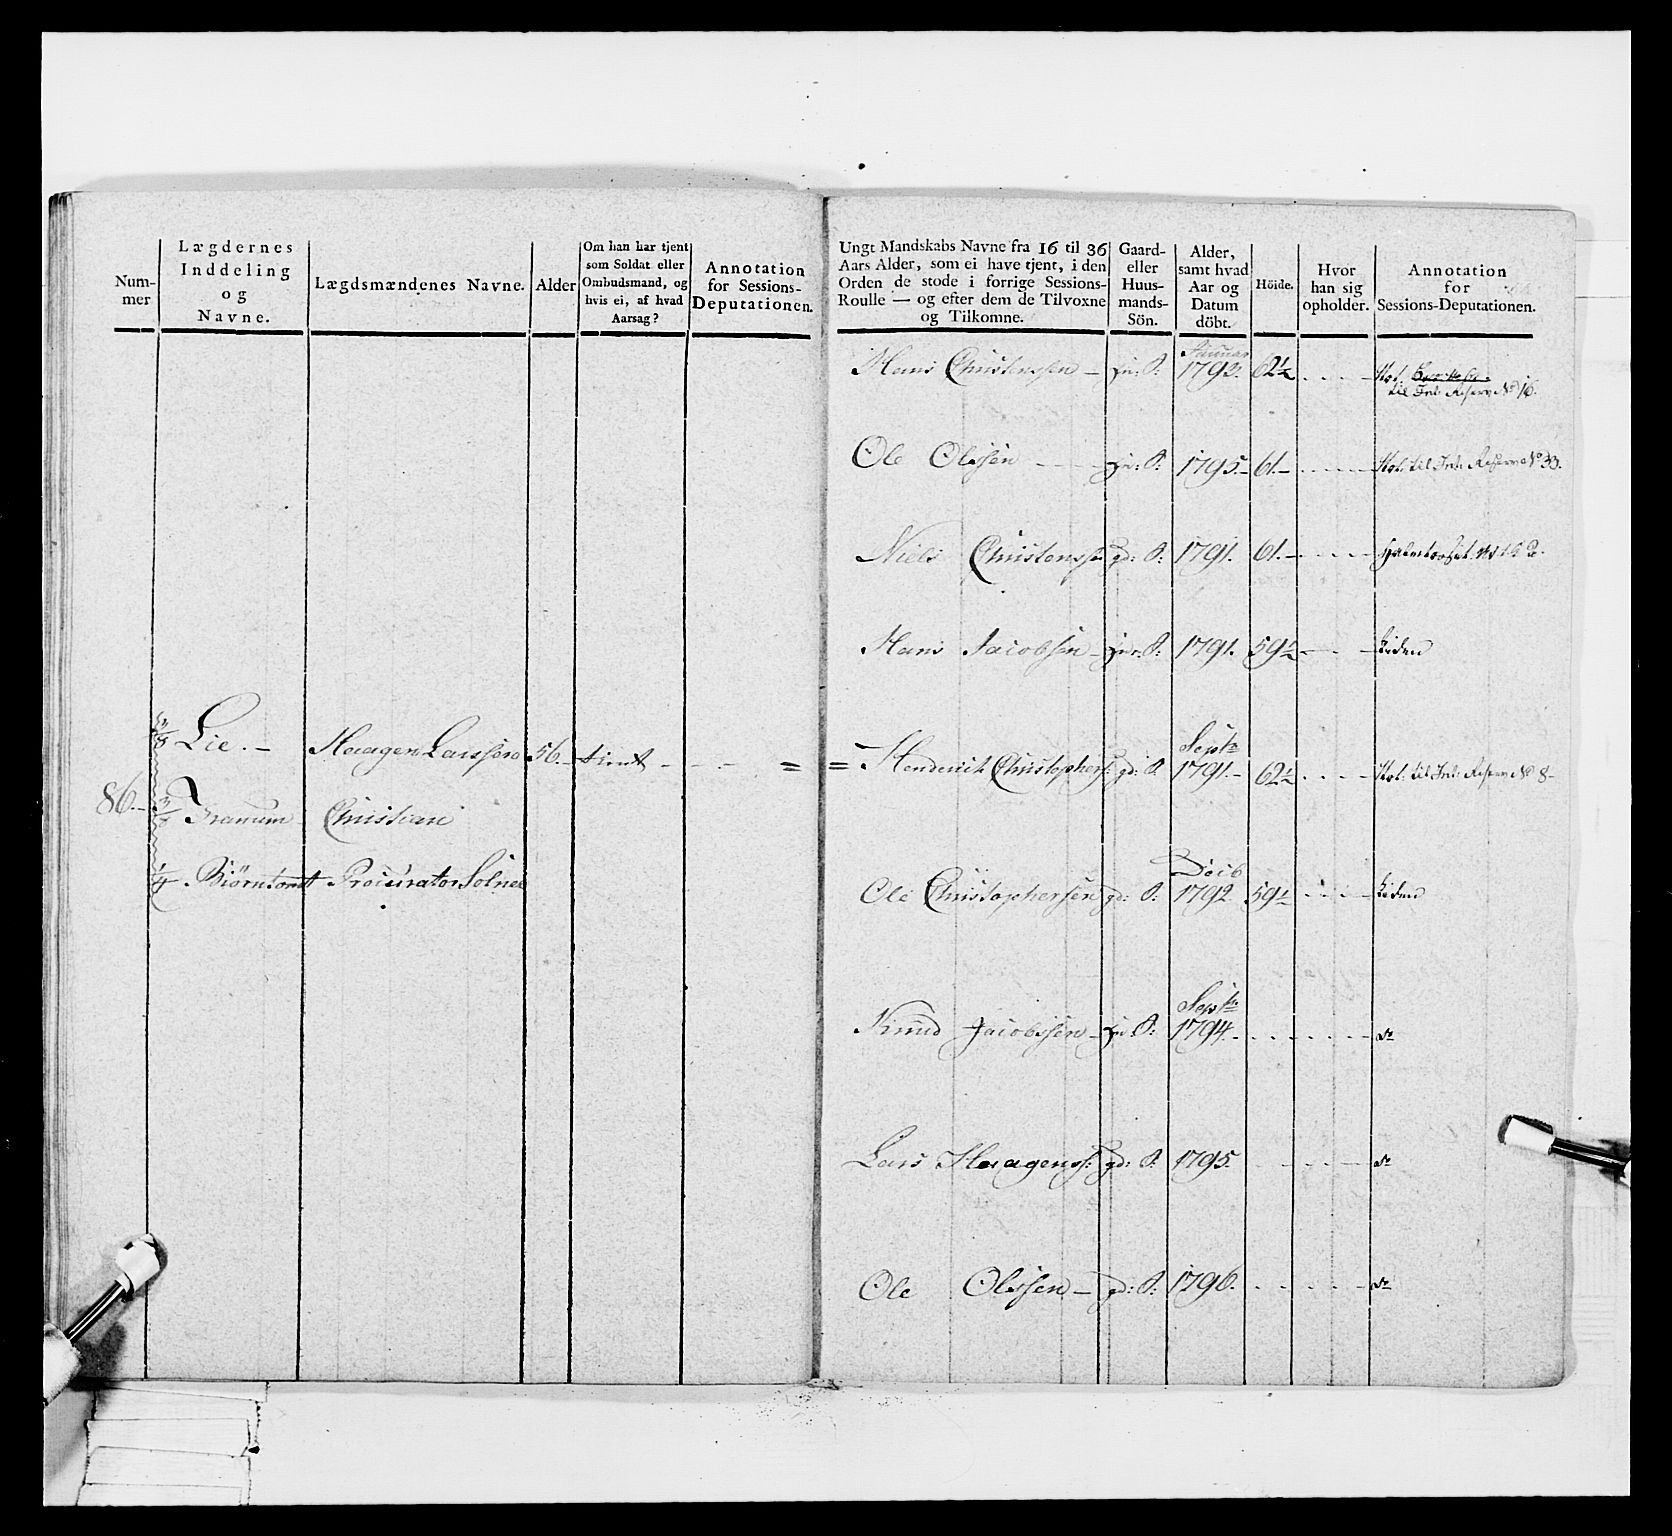 Num-
mer
Lægdernes
Inddeling
og
Navne.
Lægdsmændenes Navne.
Alder
Om han har tjent
som Soldat eller
Ombudsmand, og
hvis ei, af hvad
Aarsag?
Annotation
for Sessions-
Deputationen.
86.
Lie. Haagen Larssen 56. tient
Tranum Christian
1/4 Biörntomt Procurator Solnee
Ungt Mandskabs Navne fra 16 til 36
Aars Alder, som ei have tjent, i den
Orden de stode i forrige Sessions-
Roulle — og efter dem de Tilvoxne
og Tilkomne.
Gaard-
eller
Huus-
mands-
Sön.
Alder,
samt hvad
Aar og
Datum
döbt.
Höide.
Hvor
han sig
opholder.
Annotation
for
Sessions-Deputationen.
Januar
Hans Christenssen S: 1793. 62½
til Int: Reserv No 16.
Ole Olssen S: 1795. 61. til Int: Reserve No 33.
Niels Christenss gd: S: 1791. 61.
Hans Jacobsen S: 1791. 59½ Liden
Septr
Henderich Christophers: gd: S: 1791. 62½ til Int: Reserv No 8
Ole Christophersen gd: S: 1792 59½ Liden
Septr
Knud Jacobssen S: 1794. do
Lars Haagenss: gd: S: 1795. do
Ole Olssen gd: S: 1796. do